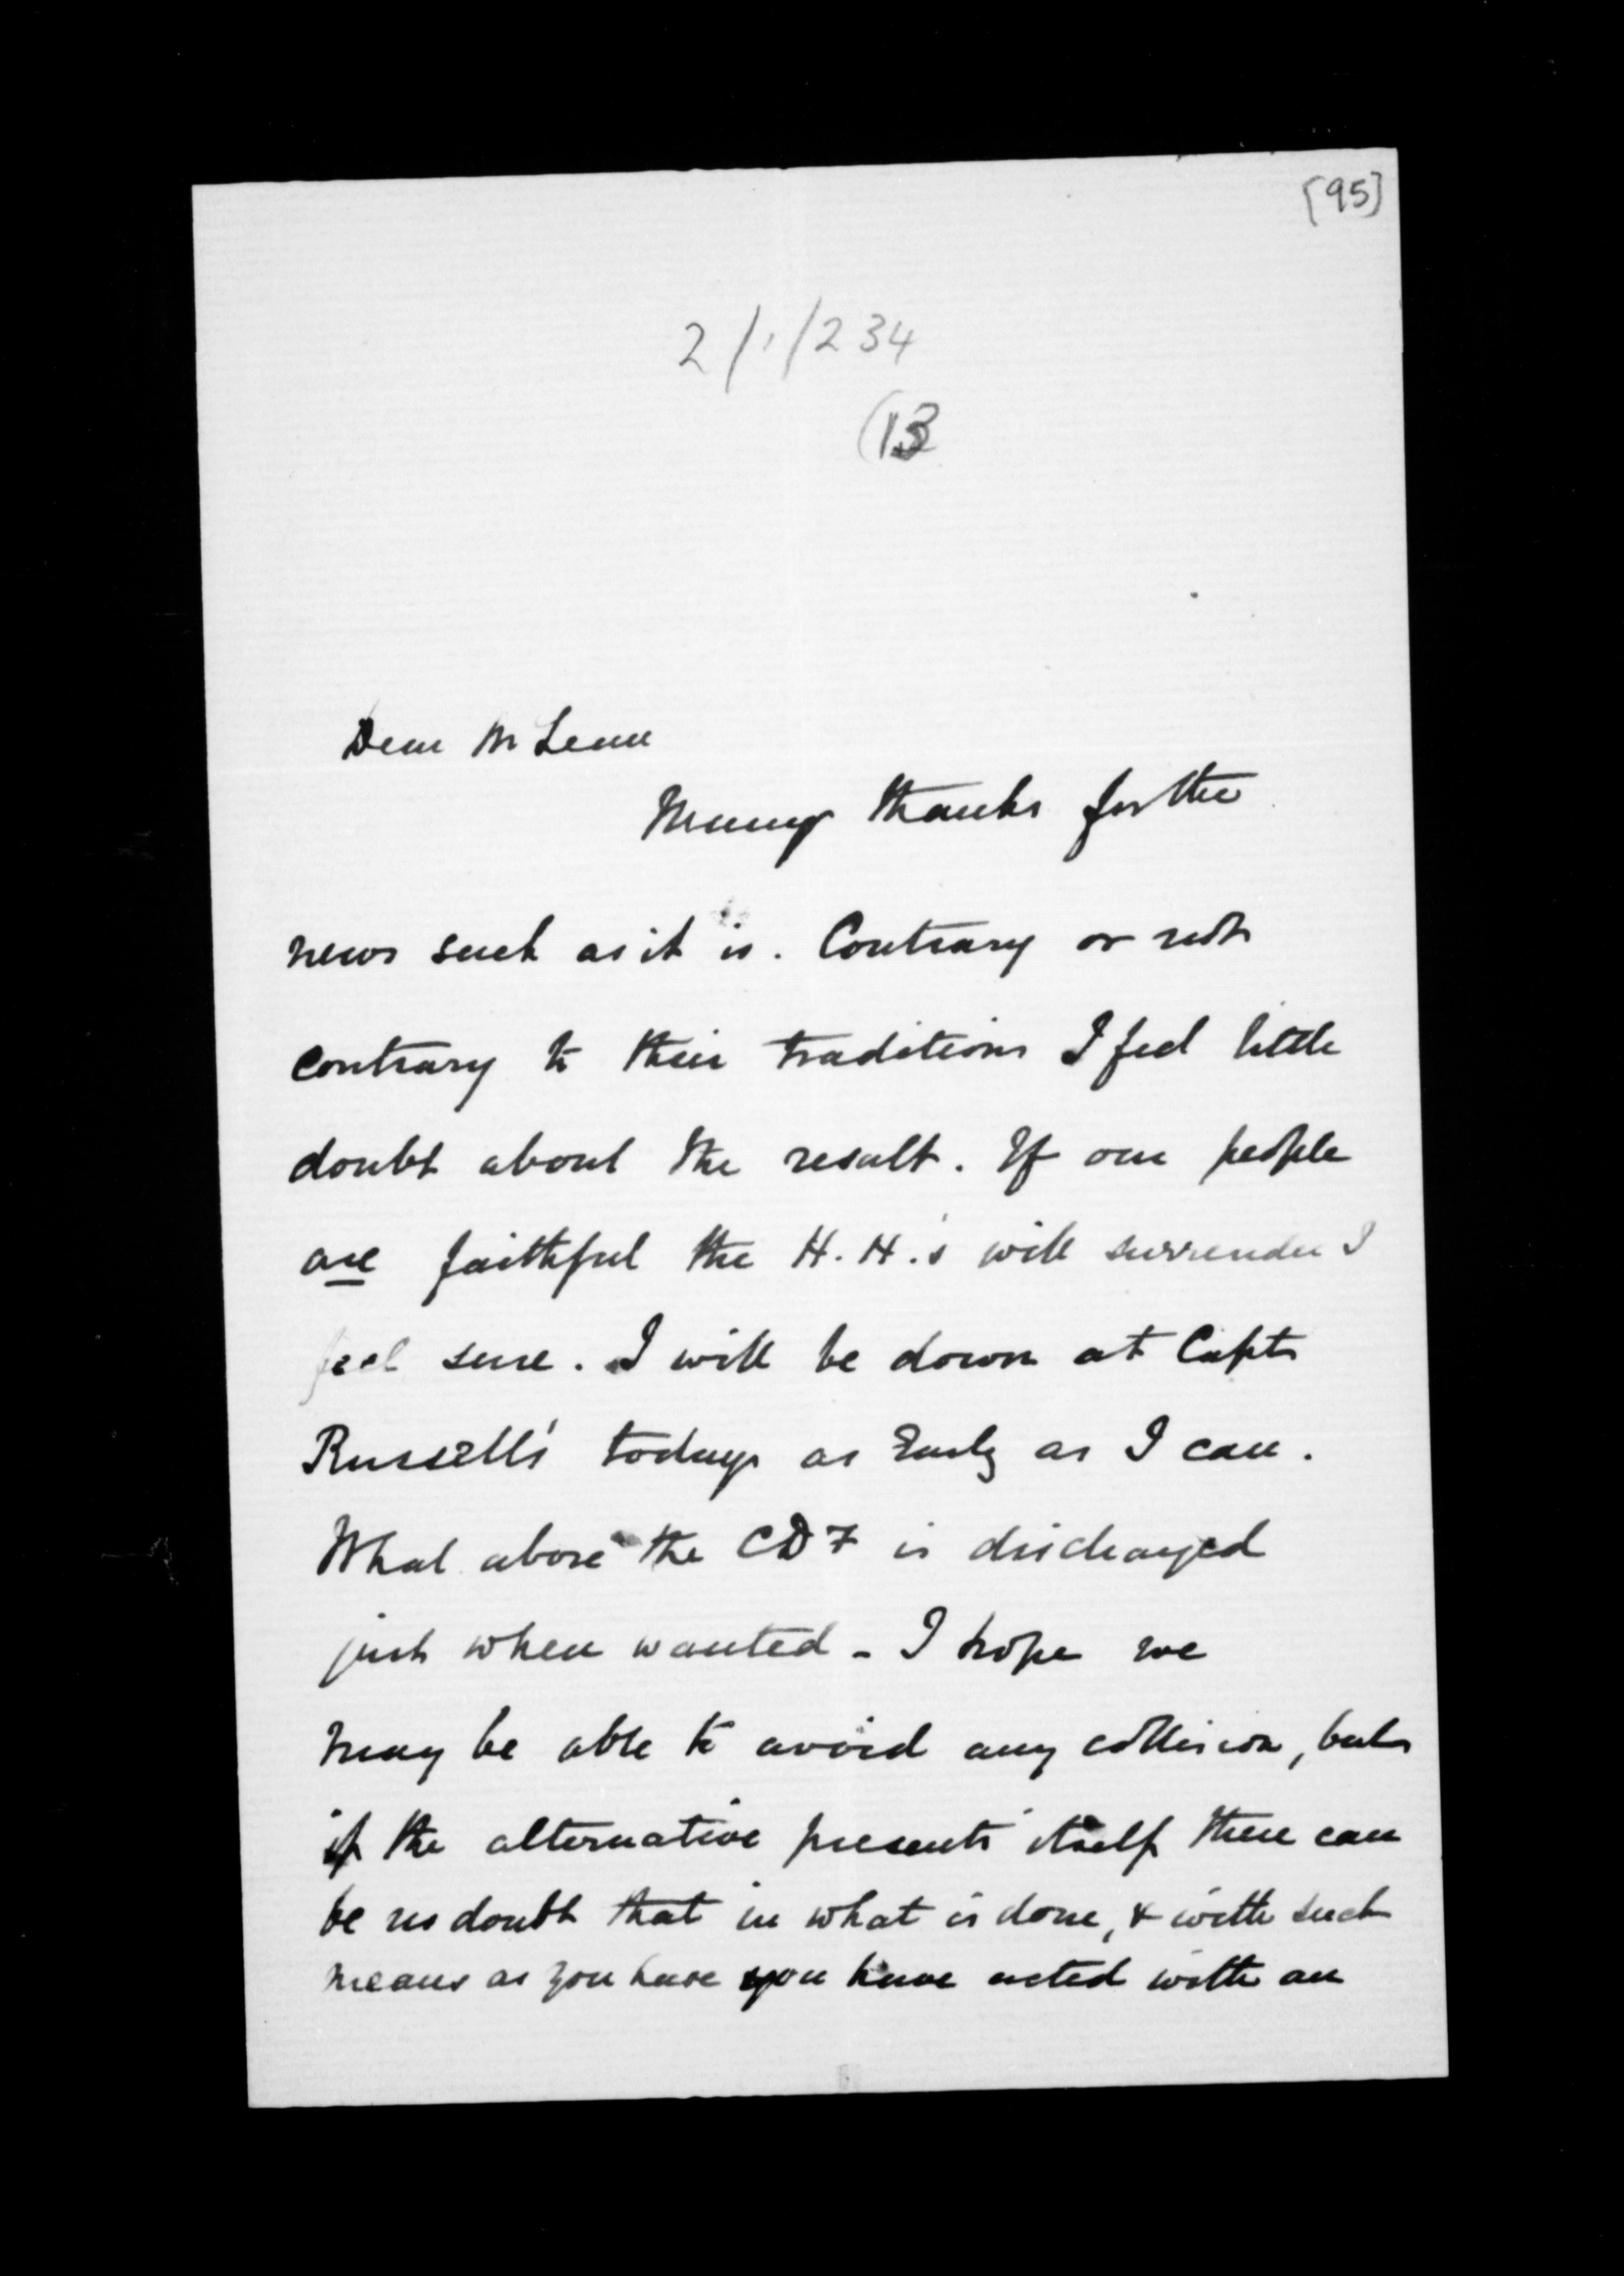 [95]
2/1/234
(13
Dear McLean
Many thanks for the
news such as it is. Contrary or not
contrary to their traditions I feel little
doubt about the result. If our people
are faithful the H.H.'s will surrender I
feel sure. I will be down at Capt
Russell's today as early as I can.
What a bore the CDF is discharged
just when wanted - I hope we
may be able to avoid any collision, but
if the alternative presents itself there can
be no doubt that in what is done, & with such
means as you have you have acted with an